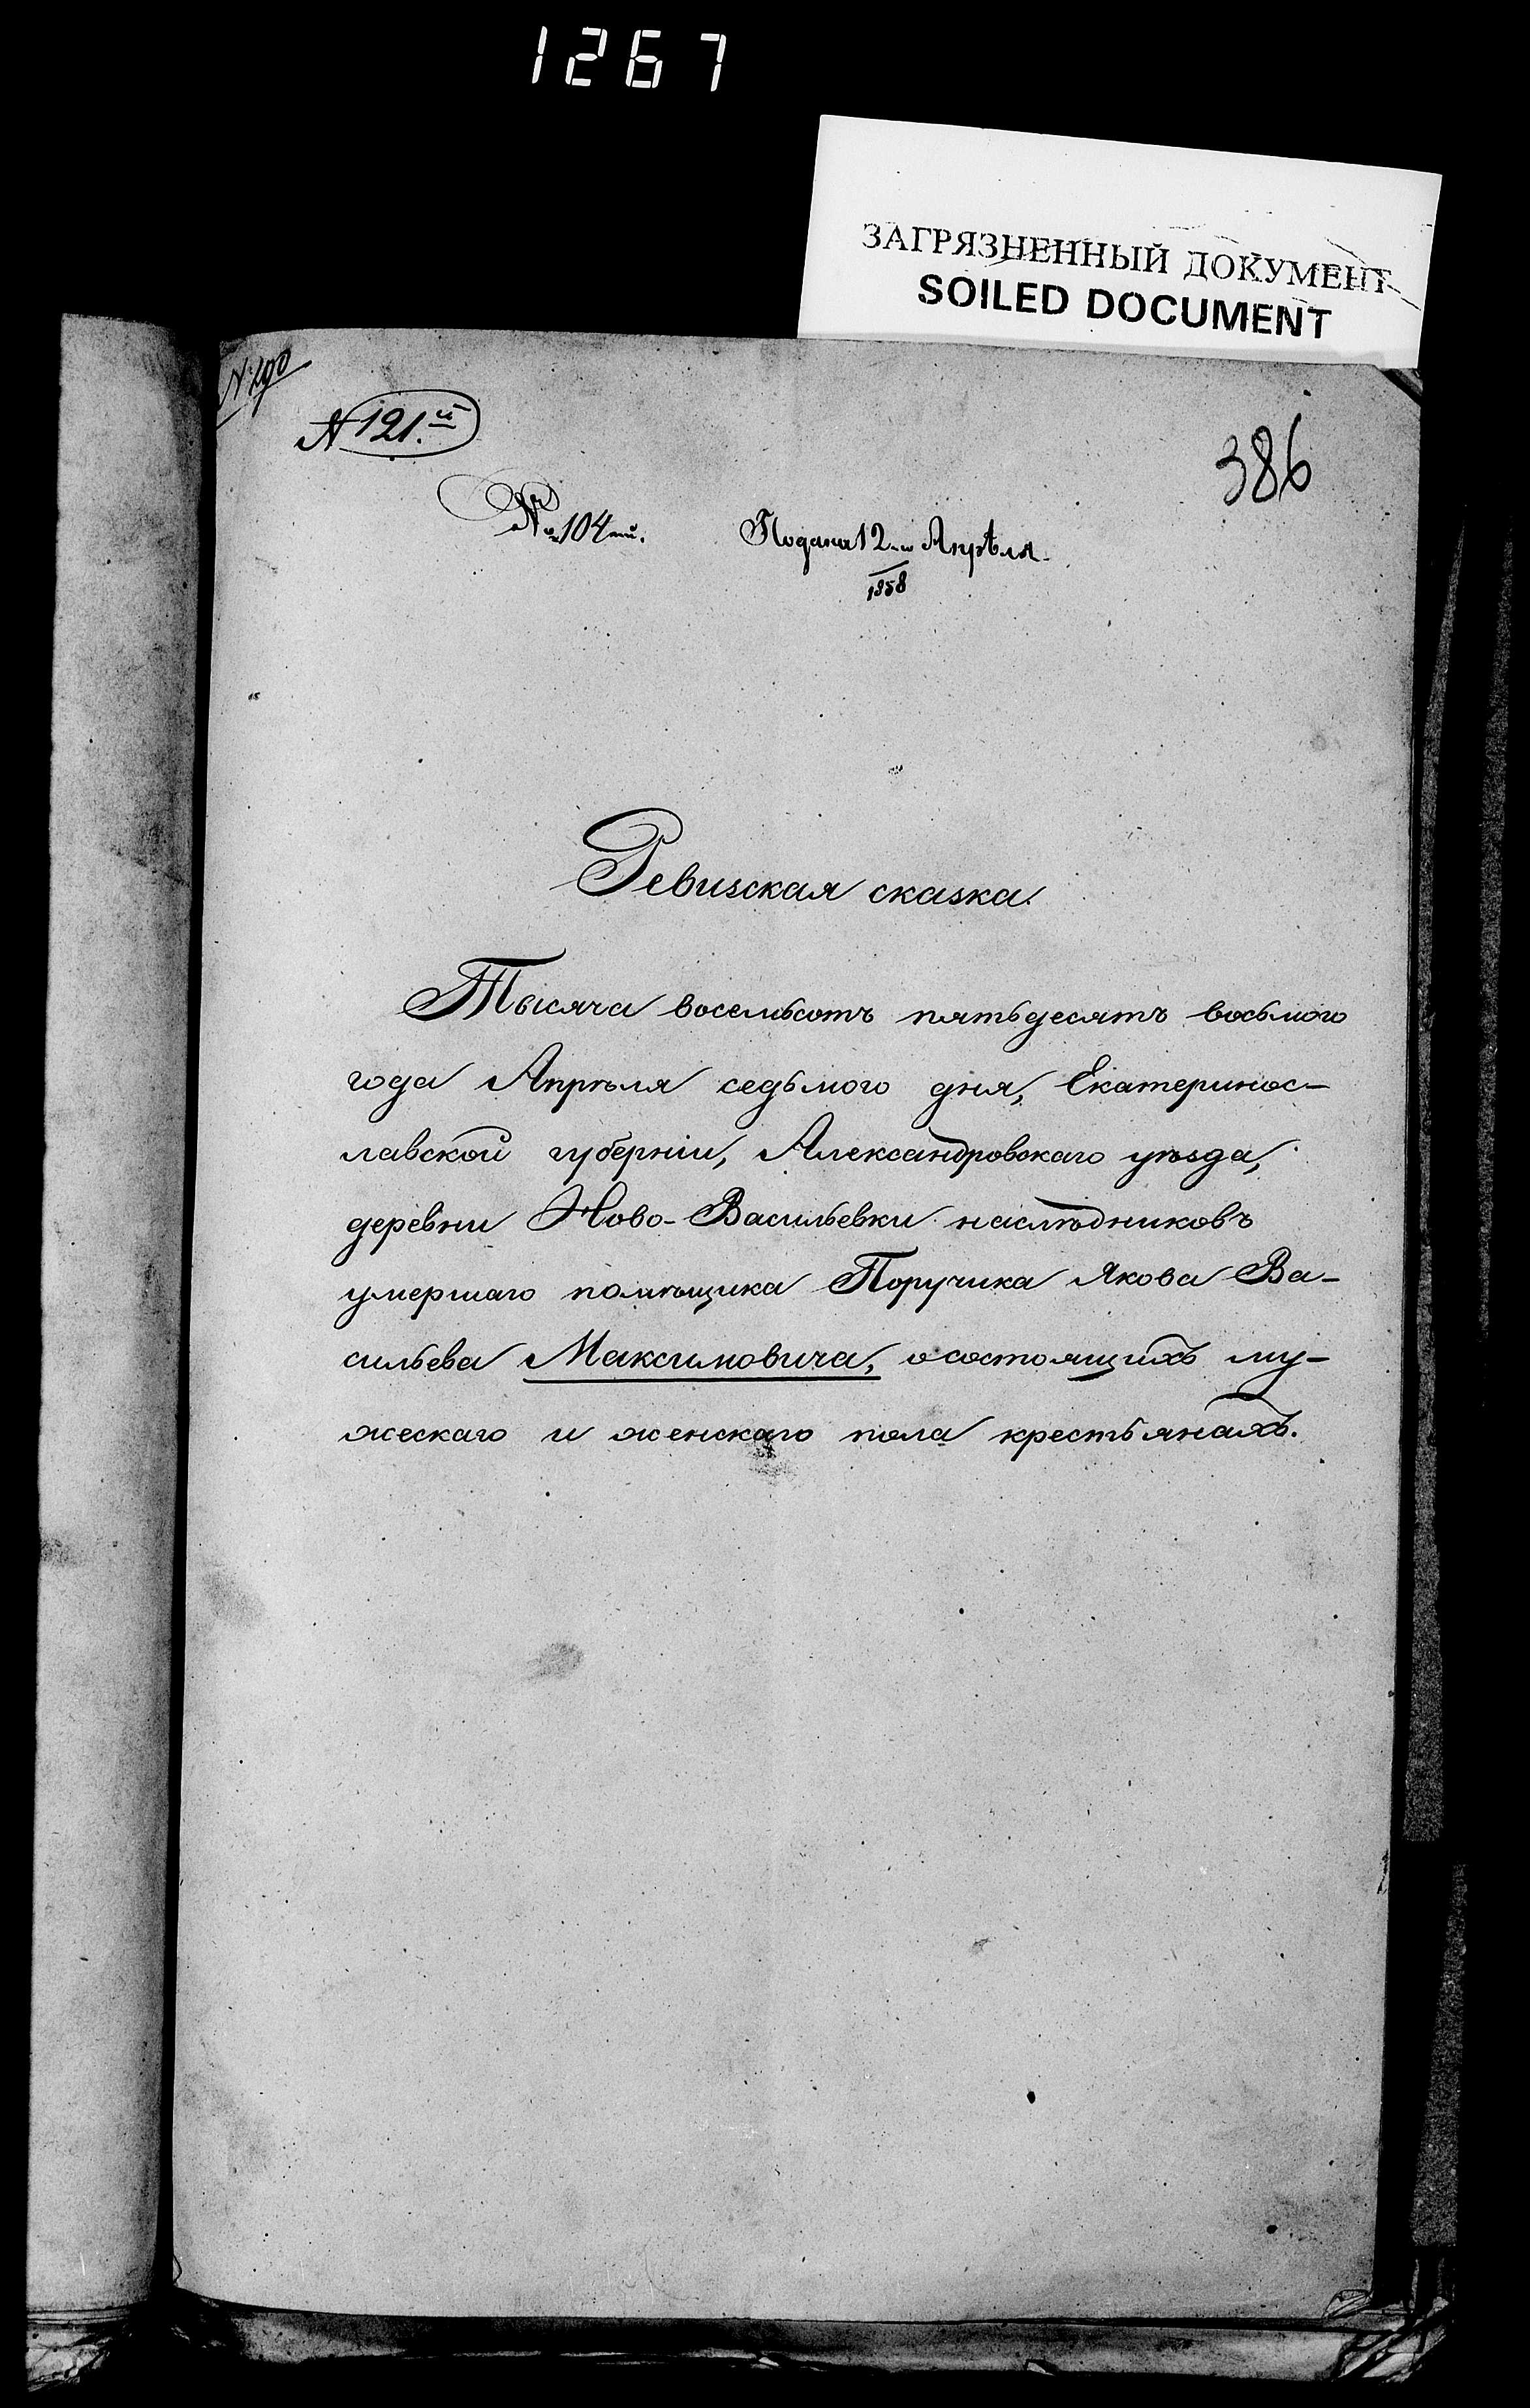 1267
ЗАГРЯЗНЕННЫЙ ДОКУМЕНТ
SOILED DOCUMENT
№ 190
№ 121.й
386
№ 104ый.
Подана 12го Апрѣля
1858
Ревизская сказка.
Тысяча восемьсотъ пятьдесятъ восьмого
года Апрѣля седьмого дня, Екатеринос-
лавской губерніи, Александровскаго уѣзда,
деревни Ново-Васильевки наслѣдниковъ
умершаго помѣщика Поручика Якова Ва-
сильева Максимовича, о состоящихъ му-
жескаго и женскаго пола крестьянахъ.